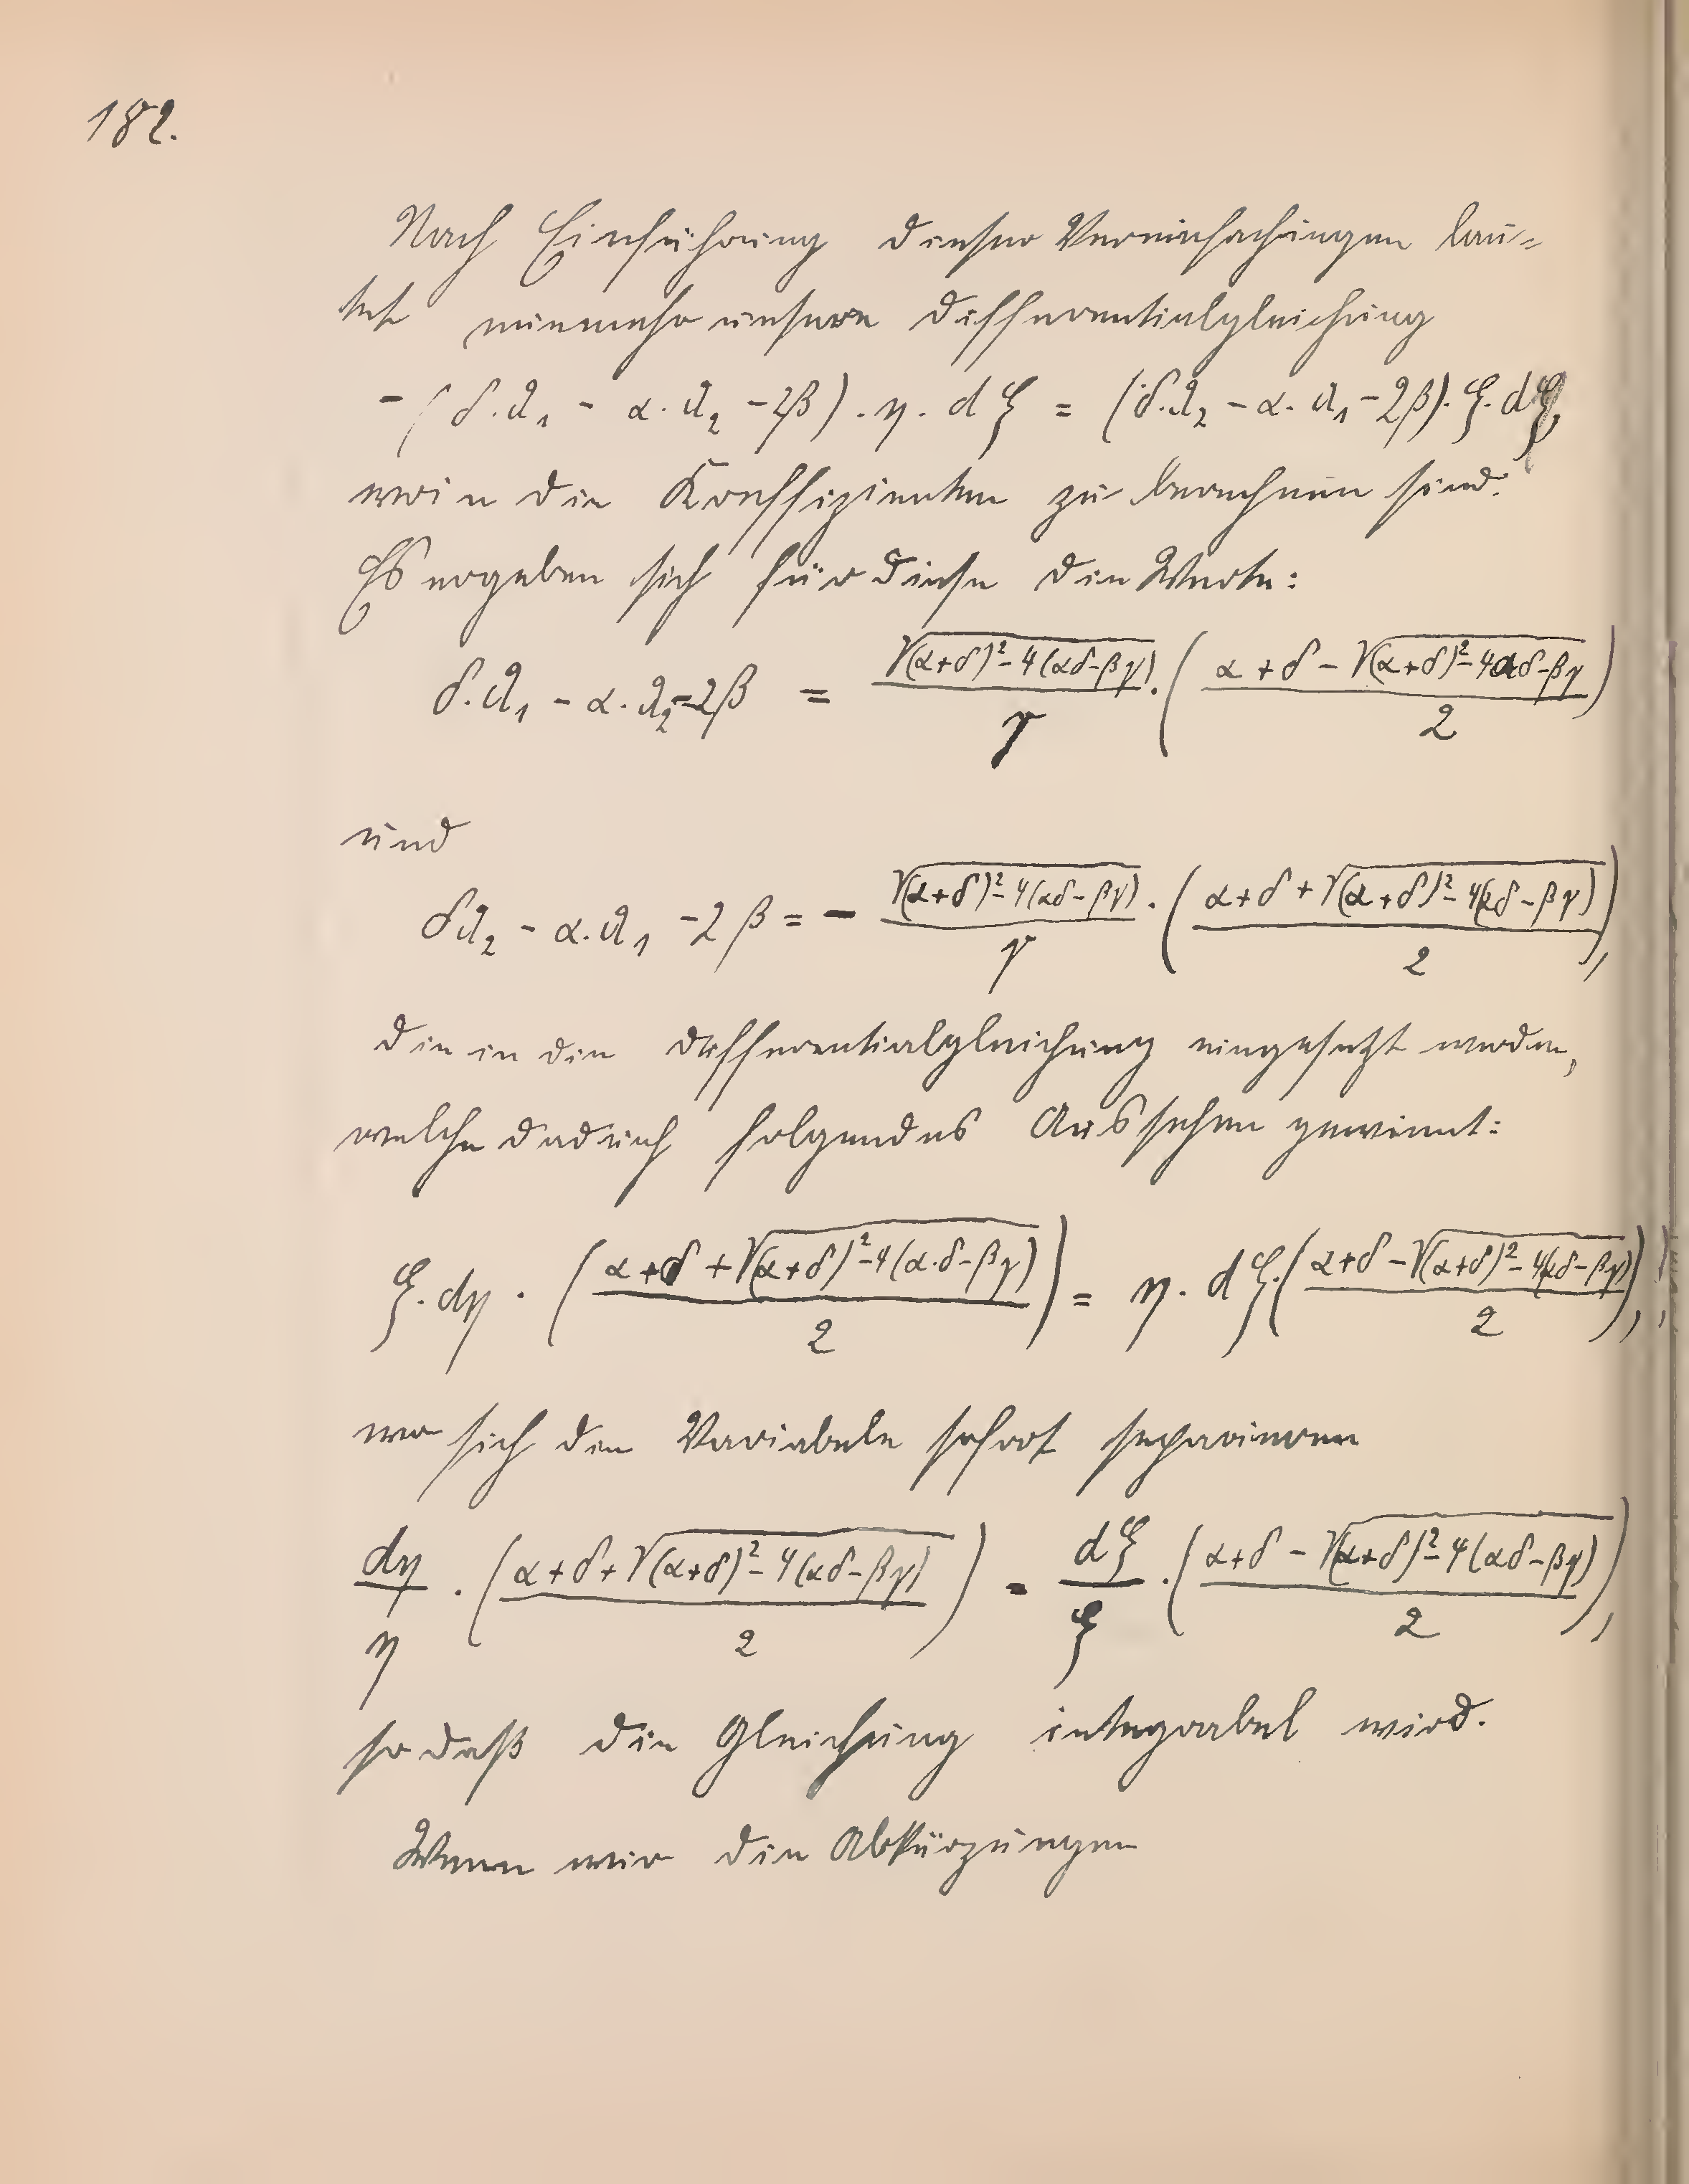 182.
Nach Einführung dieser Vereinfachungen lau=
tet nunmehr unsere Differentialgleichung
-(δ.λ₁ - α.λ₂ - 2β).η.dξ = (δ.λ₂ - α.λ₁ - 2β).ξ.dη,
worin die Koeffizienten zu berechnen sind.
Es ergeben sich für diese die Werte:
δ.λ₁ - α.λ₂ - 2β = √((α+δ)² - 4(αδ-βγ)) / γ . ( (α+δ - √((α+δ)² - 4αδ-βγ)) / 2 )
und
δλ₂ - α.λ₁ - 2β = - √((α+δ)² - 4(αδ-βγ)) / γ . ( (α+δ + √((α+δ)² - 4(αδ-βγ))) / 2 ),
die in die Differentialgleichung eingesetzt werden,
welche dadurch folgendes Aussehen gewinnt:
ξ.dη . ( (α+δ + √((α+δ)² - 4(α.δ-βγ))) / 2 ) = η.dξ.( (α+δ - √((α+δ)² - 4(αδ-βγ))) / 2 ),
wo sich die Variabeln sofort separieren
dη/η . ( (α+δ + √((α+δ)² - 4(αδ-βγ))) / 2 ) = dξ/ξ . ( (α+δ - √((α+δ)² - 4(αδ-βγ))) / 2 ),
so daß die Gleichung integrabel wird.
Wenn wir die Abkürzungen